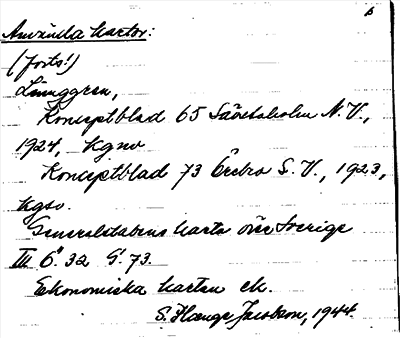 Använda kartor:
(forts!)
Ljunggren,
Konceptblad 65 Säfsholm N.V.,
1924, Kgno
Konceptblad 73 Örebro S.V., 1923,
Kgso.
Generalstabens karta över Sverige
III Ö. 32 G. 73.
Ekonomiska kartan ek.
S. Hauge Jacobson, 1944.